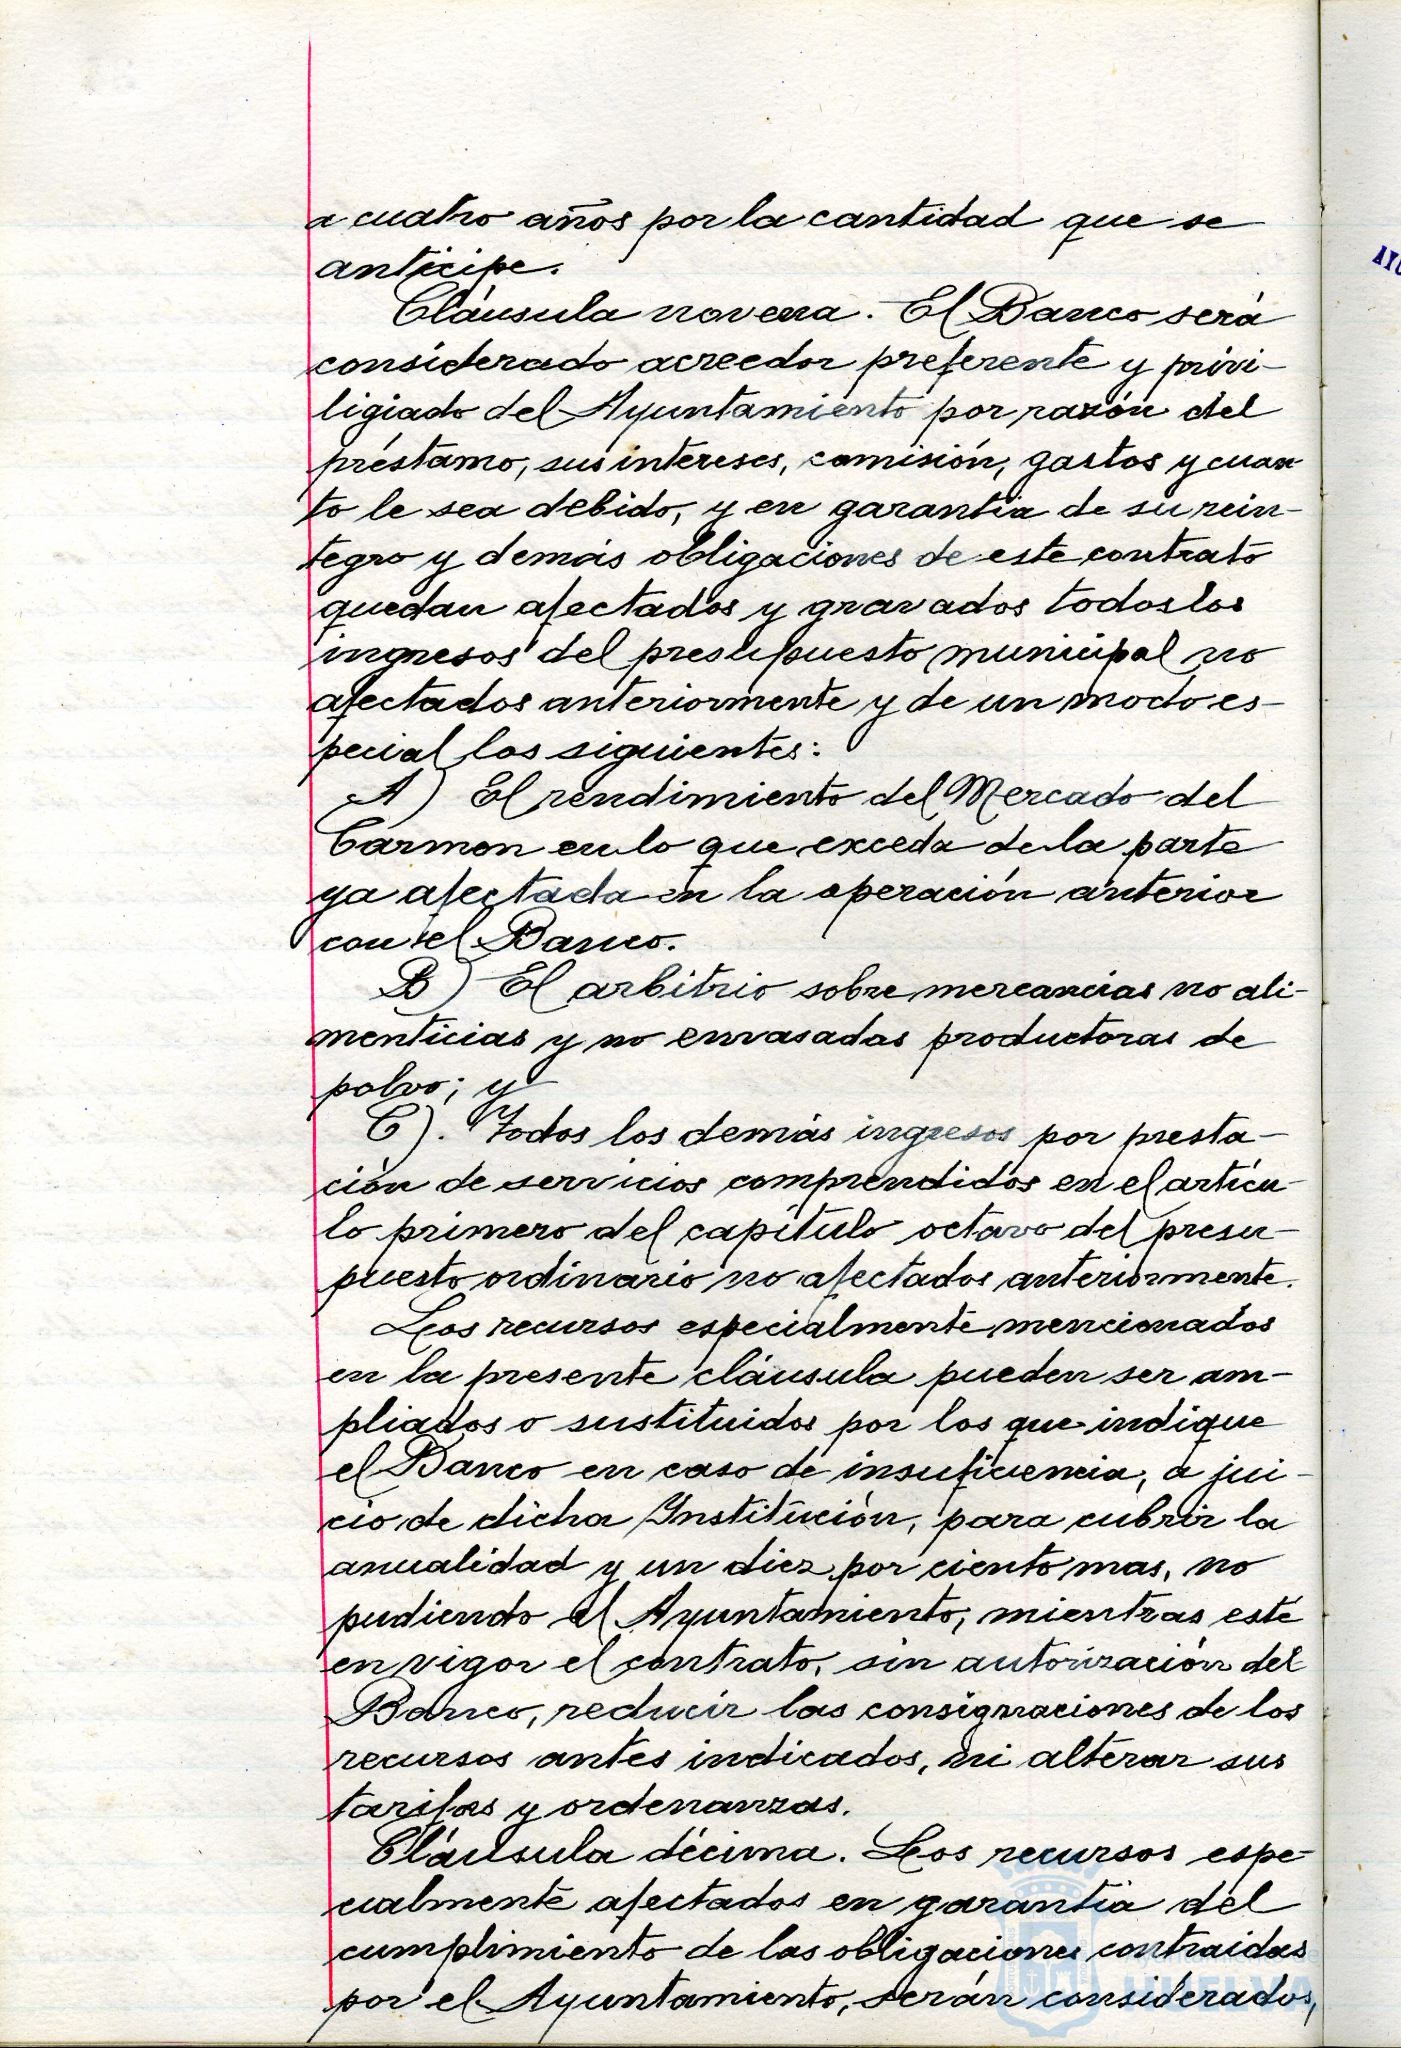 a cuatro años por la cantidad que se
anticipe.
Cláusula novena. El Banco será
considerado acreedor preferente y privi-
ligiado del Ayuntamiento por razón del
préstamo, sus intereses, comisión, gastos y cuan
to le sea debido, y en garantia de su rein-
tegro y demás obligaciones de este contrato
quedan afectados y gravados todos los
ingresos del presupuesto municipal no
afectados anteriormente y de un modo es-
pecial los siguientes:
A) El rendimiento del Mercado del
Carmen en lo que exceda de la parte
ya afectada en la operación anterior
con el Banco.
B) El arbitrio sobre mercancias no ali-
menticias y no envasadas productoras de
polvo; y
C). Todos los demás ingresos por presta-
ción de servicios comprendidos en el artícu-
lo primero del capítulo octavo del presu-
puesto ordinario no afectados anteriormente.
Los recursos especialmente mencionados
en la presente cláusula pueden ser am-
pliados o sustituidos por los que indique
el Banco en caso de insuficiencia, a jui-
cio de dicha Institución, para cubrir la
anualidad y un diez por ciento mas, no
pudiendo el Ayuntamiento, mientras esté
en vigor el contrato, sin autorización del
Banco, reducir las consignaciones de los
recursos antes indicados, ni alterar sus
tarifas y ordenanzas.
Cláusula décima. Los recursos espe-
cialmente afectados en garantía del
cumplimiento de las obligaciones contraidas
por el Ayuntamiento, serán considerados,
Ayuntamiento de
HUELVA